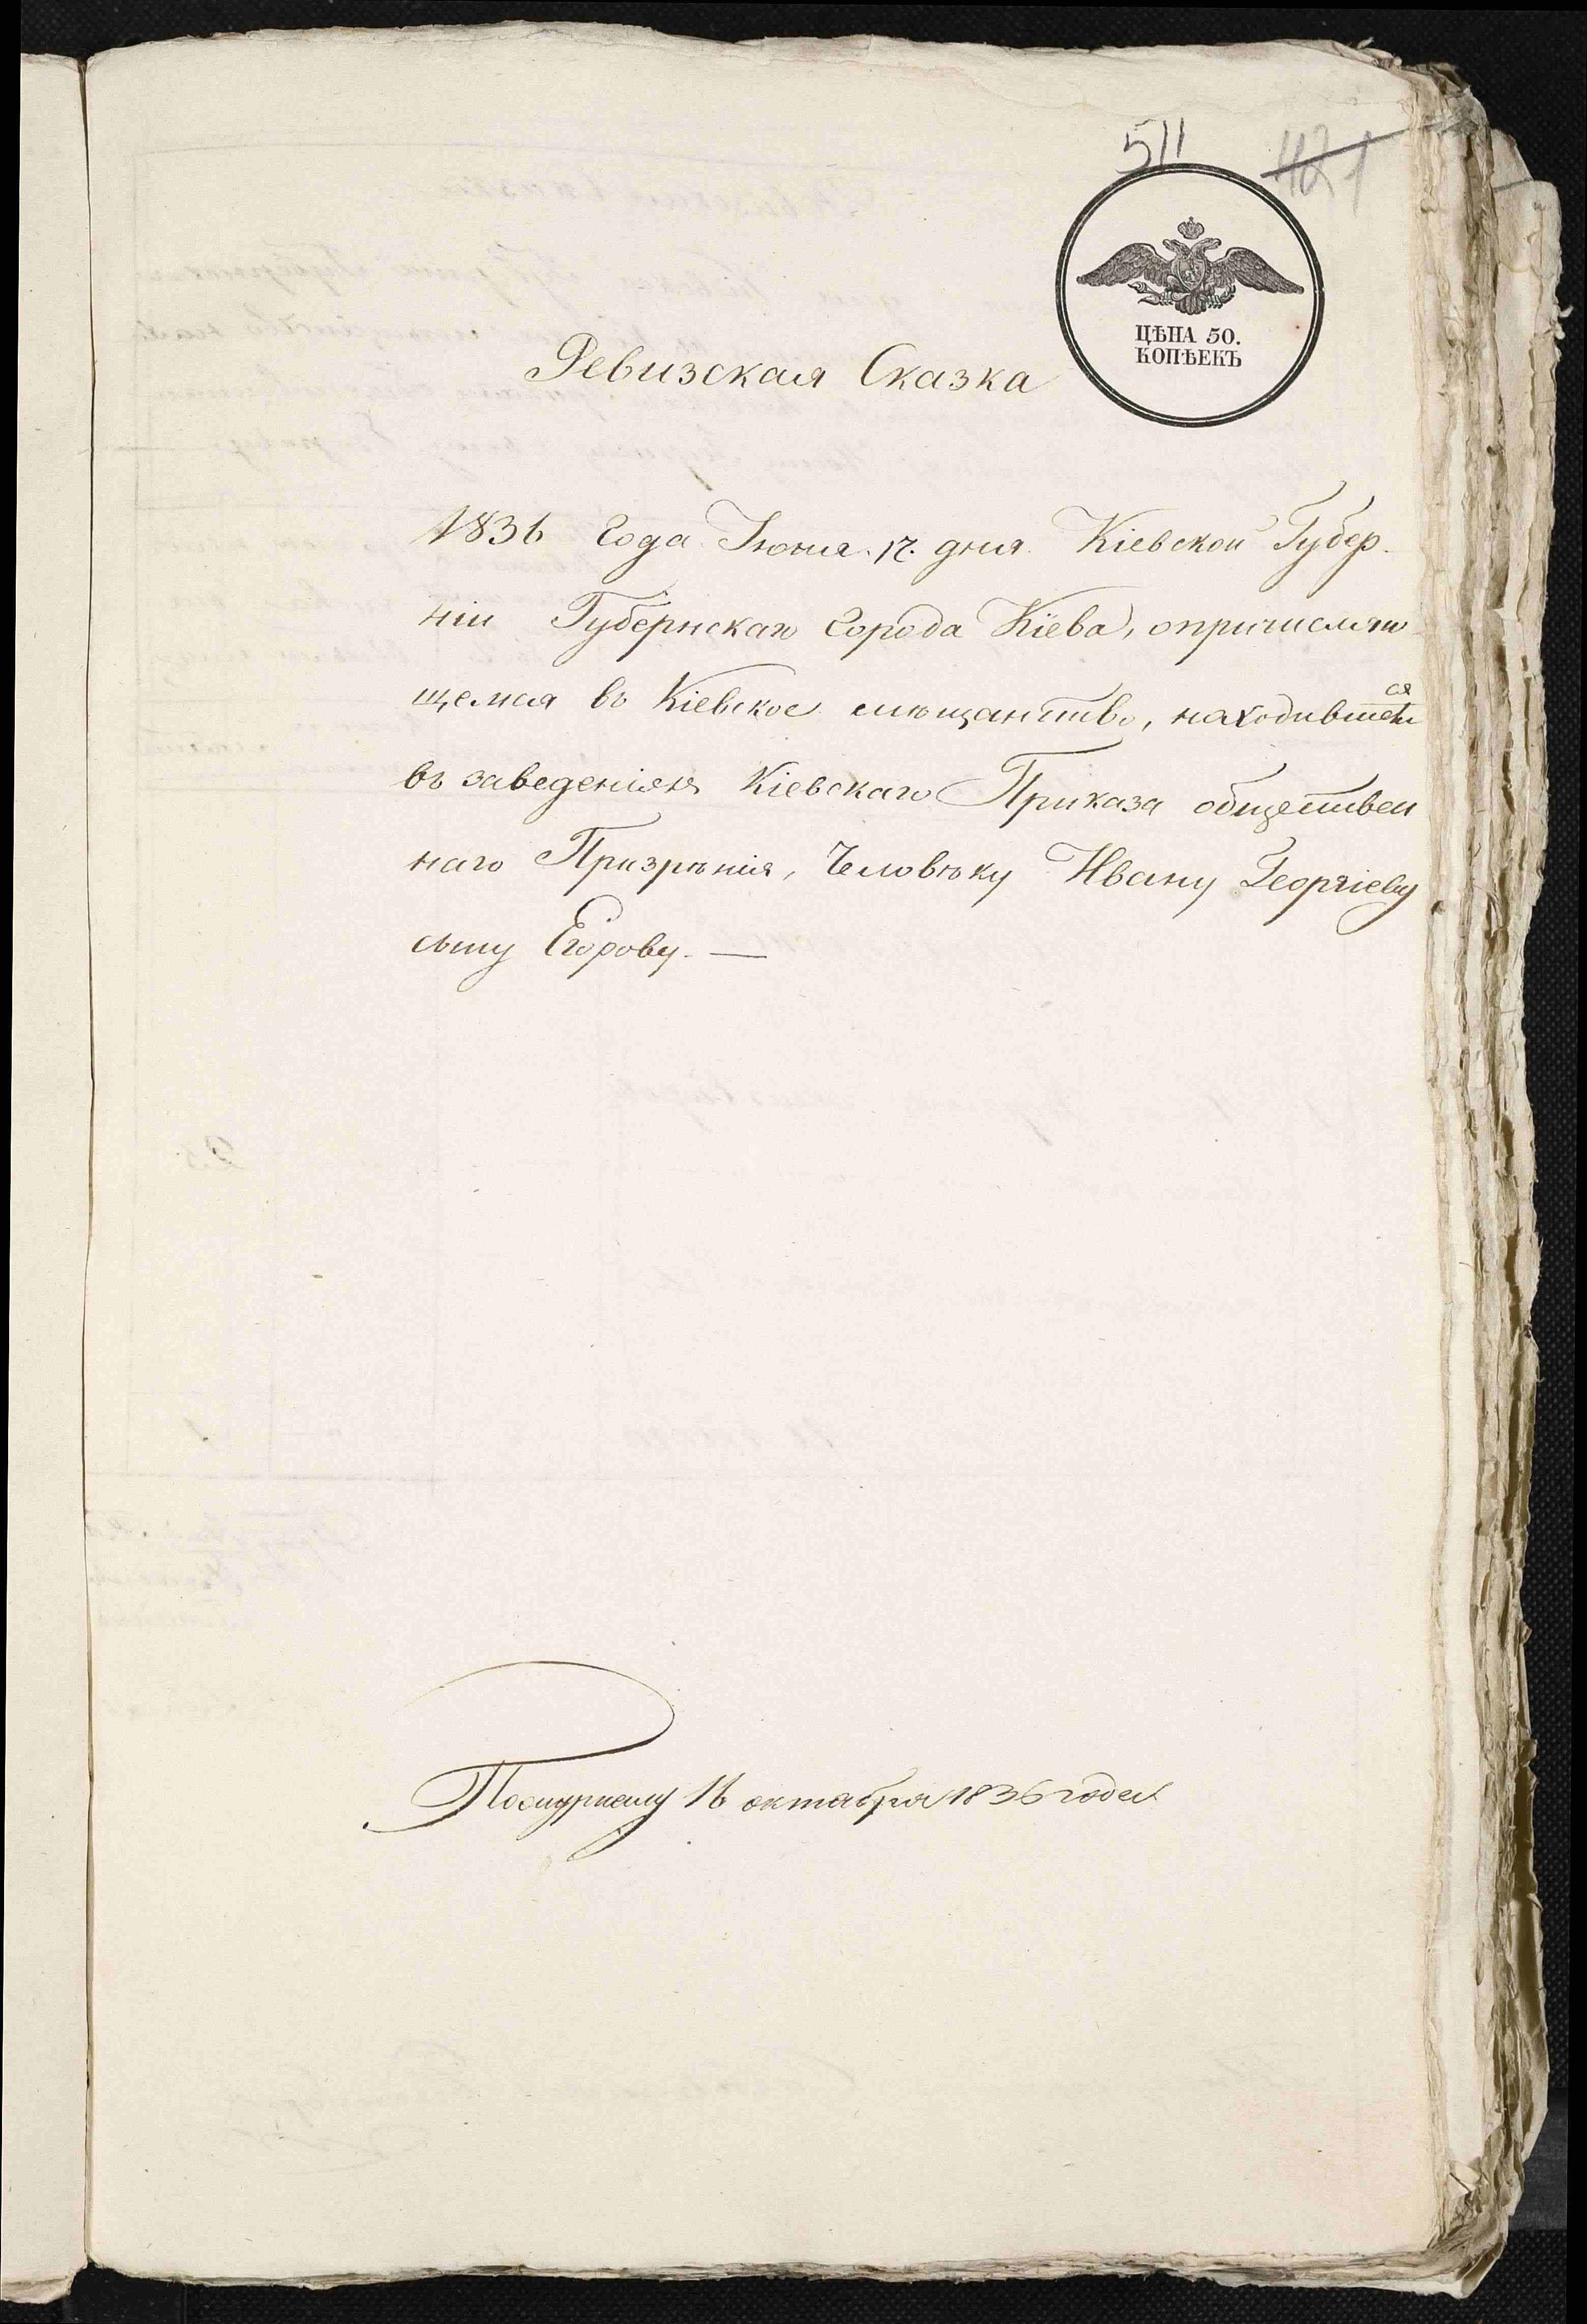 511
421
ЦѢНА 50.
КОПѢЕКЪ
Ревизская Сказка
1836 Года Іюня 17. дня Кіевской Губер
ніи Губернскаго Города Кіева, опричисляю
щемся въ Кіевское мѣщанство, находившемся
въ заведеніяхъ Кіевскаго Приказа обществен
наго Призрѣнія, Человѣку Ивану Георгіеву
сыну Егорову. —
16 октября 1836 года